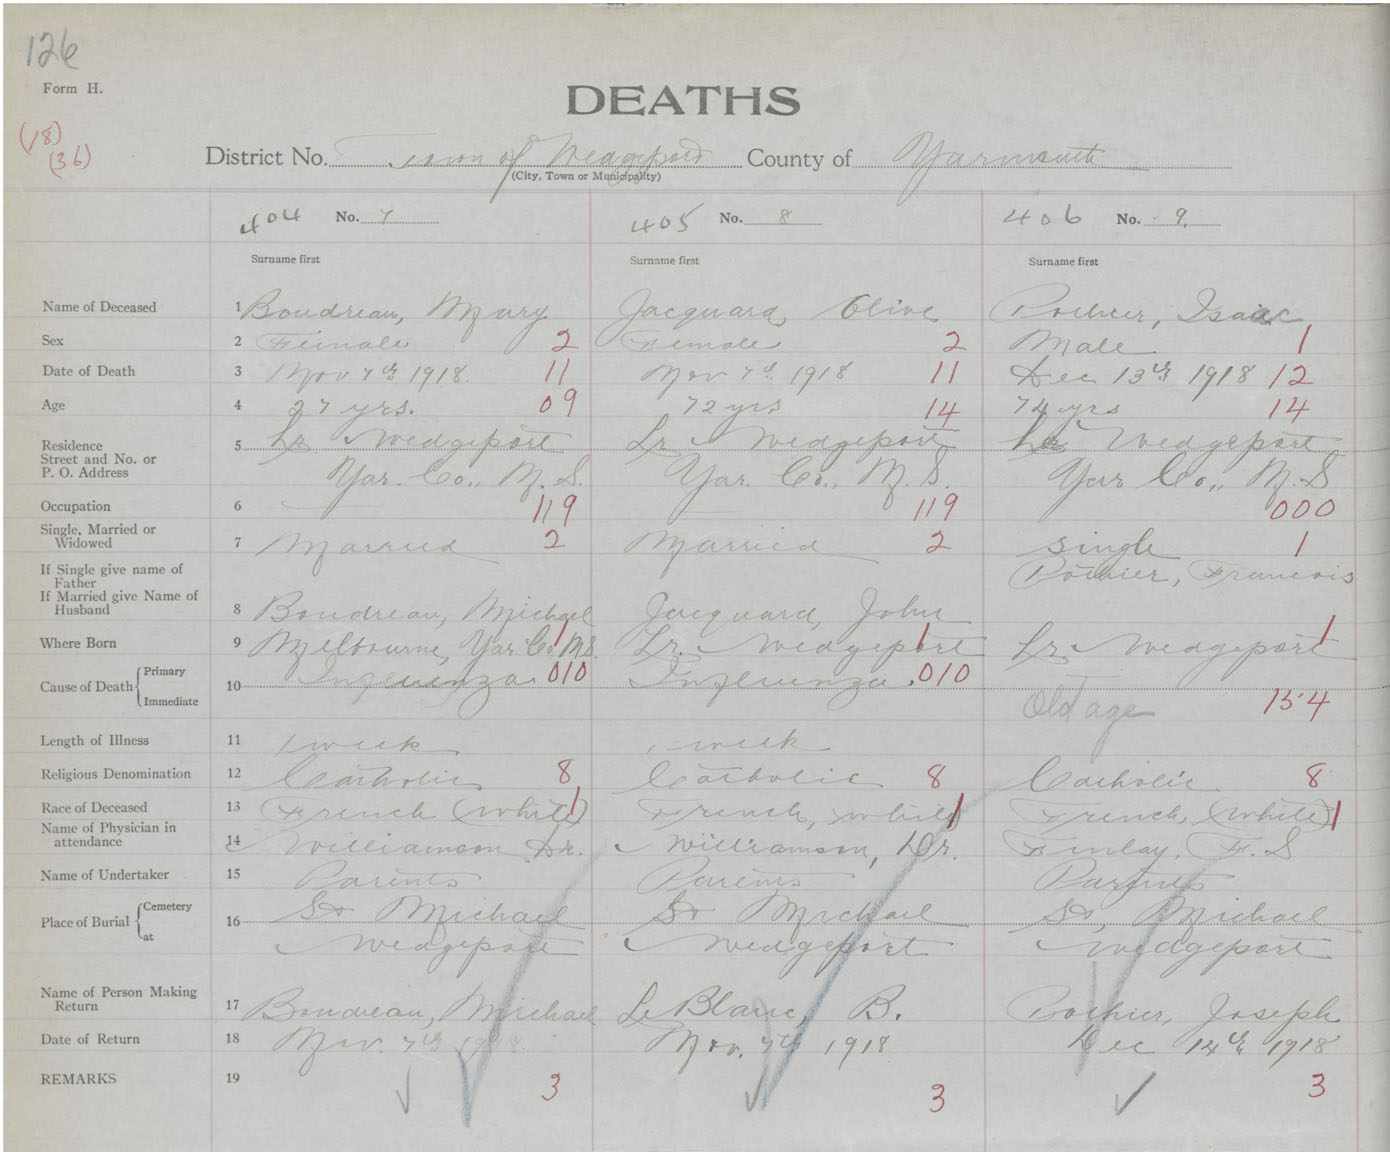 126
Form H.
DEATHS
(18)
(36)
District No. Town of Wedgeport County of Yarmouth
(City, Town or Municipality)
404 No. 7 405 No. 8 406 No. 9.
Surname first Surname first Surname first
Name of Deceased 1 Boudreau, Mary Jacquard, Olive Pothier, Isaac
Sex 2 Female 2 Female 2 Male 1
Date of Death 3 Nov 7th 1918. 11 Nov 7th 1918 11 Dec 13th 1918 12
Age 4 27 yrs. 09 72 yrs 14 74 yrs 14
Residence
Street and No. or
P. O. Address
5 Lr Wedgeport Lr. Wedgeport Lr Wedgeport
Yar. Co., N. S. Yar. Co., N. S. Yar Co., N. S
Occupation 6 119 119 000
Single, Married or
Widowed
7 Married 2 Married 2 single 1
If Single give name of
Father
Pothier, Francois
If Married give Name of
Husband
8 Boudreau, Michael Jacquard, John
Where Born 9 Melbourne, Yar. Co. N.S. 1 Lr. Wedgeport 1 Lr. Wedgeport 1
Cause of Death Primary
Immediate
10 Influenza 010 Influenza. 010
Old age 154
Length of Illness 11 1 week 1 week
Religious Denomination 12 Catholic 8 Catholic 8 Catholic 8
Race of Deceased 13 French (White) 1 French, White 1 French, (White) 1
Name of Physician in
attendance
14 Williamson, Dr. Williamson, Dr. Finlay, F. S
Name of Undertaker 15 Parents Parents Parents
Place of Burial Cemetery
at
16 St Michael St Michael St, Michael
Wedgeport Wedgeport Wedgeport
Name of Person Making
Return
17 Boudreau, Michael Le Blanc, B. Pothier, Joseph
Date of Return 18 Nov. 7th 1918 Nov. 7th 1918 Dec 14th 1918
REMARKS 19 3 3 3